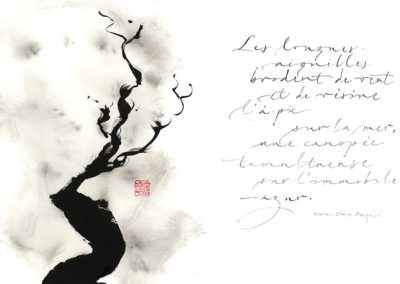 Les longues
aiguilles
brodent de vent
et de résine
l'à pic
sur la mer,
une canopée
tumultueuse
sur l'immobile
azur.
marie-claire